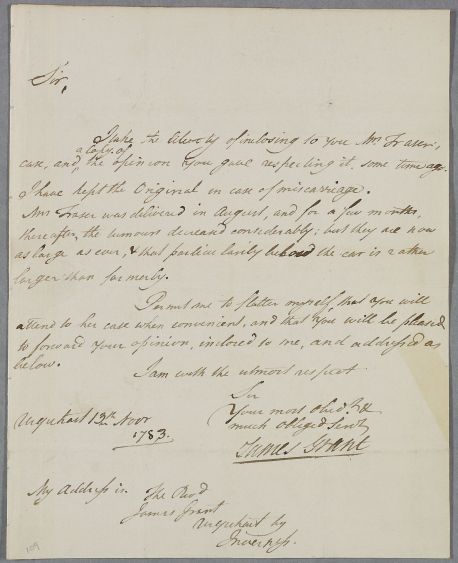 Sir,
I take the liberty of inclosing to you Mrs Fraser's
a Copy of
case, and the opinion you gave respecting it, some time ago.
I have kept the Original in case of miscarriage.
Mrs Fraser was delivered in August, and for a few months,
thereafter, the tumours decreased considerably; but they are now
as large as ever, & that particularly behind the ear is rather
larger than formerly.
Permit me to flatter myself, that you will
attend to her case when convenient, and that you will be pleased
to forward your opinion, inclosed to me, and addressed as
below.
I am with the utmost respect
Sir
Your most Obedt. &
much obliged Servt
James Grant
Urquhart 13th Novr
1783.
My Address is. The Revd
James Grant
Urquhart by
Inverness.
109